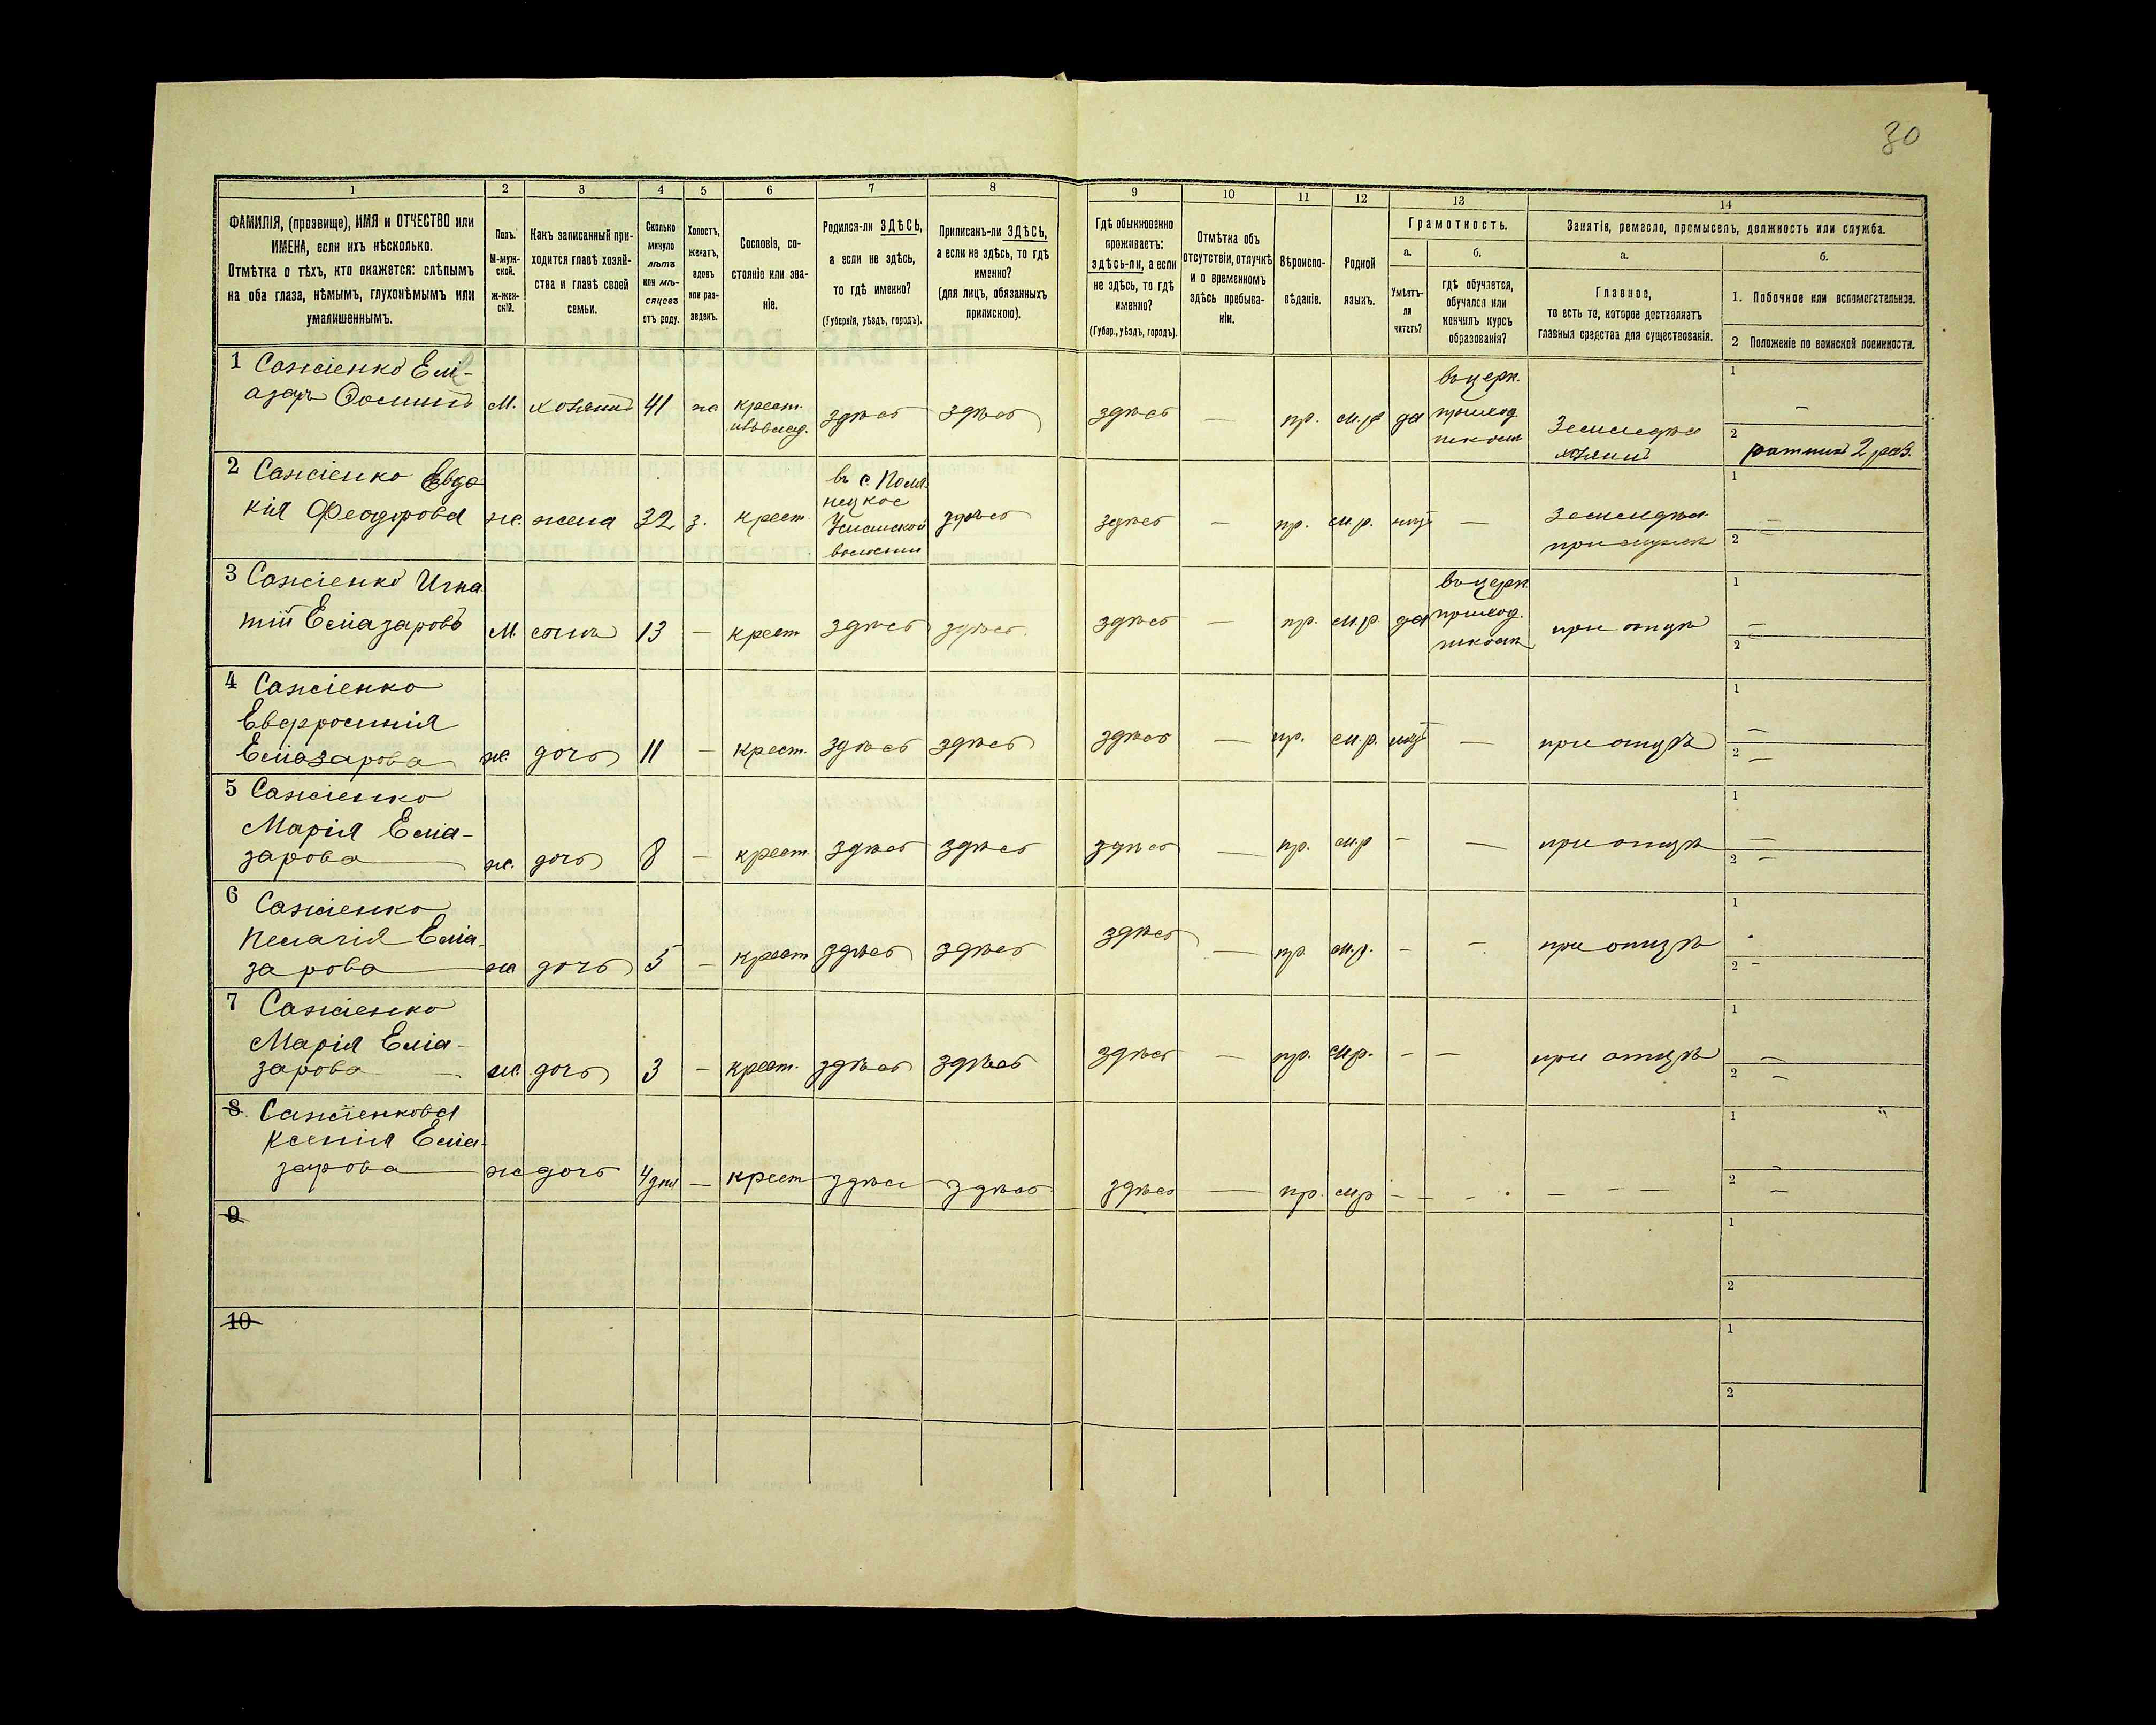 30
1
2
3
4
5
6
7
8
9
10
11
12
13
14
ФАМИЛІЯ, (прозвище), ИМЯ и ОТЧЕСТВО или
ИМЕНА, если ихъ нѣсколько.
Отмѣтка о тѣхъ, кто окажется: слѣпымъ
на оба глаза, нѣмымъ, глухонѣмымъ или
умалишеннымъ.
Полъ.
М-муж-
ской.
ж-жен-
скій.
Какъ записанный при-
ходится главѣ хозяй-
ства и главѣ своей
семьи.
Сколько
минуло
лѣтъ
или мѣ-
сяцевъ
отъ роду.
Холостъ,
женатъ,
вдовъ
или раз-
веденъ.
Сословіе, со-
стояніе или зва-
ніе.
Родился-ли ЗДѢСЬ,
а если не здѣсь,
то гдѣ именно?
(Губернія, уѣздъ, городъ).
Приписанъ-ли ЗДѢСЬ,
а если не здѣсь, то гдѣ
именно?
(для лицъ, обязанныхъ
припискою).
Гдѣ обыкновенно
проживаетъ:
здѣсь-ли, а если
не здѣсь, то гдѣ
именно?
(Губер., уѣздъ, городъ).
Отмѣтка объ
отсутствіи, отлучкѣ
и о временномъ
здѣсь пребыва-
ніи.
Вѣроиспо-
вѣданіе.
Родной
языкъ.
Грамотность.
а.
Умѣетъ-
ли
читать?
б.
гдѣ обучается,
обучался или
кончилъ курсъ
образованія?
Занятія, ремесло, промыселъ, должность или служба.
а.
Главное,
то есть то, которое доставляетъ
главныя средства для существованія.
б.
1. Побочное или вспомогательное.
2 Положеніе по воинской повинности.
1 Сажіенко Елі-
азаръ Ѳоминъ м. хозяинъ 41 же крест. здѣсь здѣсь здѣсь — пр. м.р. да въ церк.
приход.
школѣ
хозяинъ
1 —
2 ратникъ 2 раз.
2 Сажіенко Евдо
кія Феодорова ж. жена 32 з. крест. въ с.
волости
здѣсь здѣсь — пр. м.р. —
1 —
2
3 Сажіенко Игна
тій Еліазаровъ м. сынъ 13 — крест здѣсь здѣсь здѣсь — пр. м.р. да въ церк.
приход.
школѣ
при отцѣ
1 —
2
4 Сажіенко
Евфросинія
Еліазарова ж. дочь 11 — крест. здѣсь здѣсь здѣсь — пр. м.р. — при отцѣ
1 —
2 —
5 Сажіенко
Марія Еліа-
зарова ж. дочь 8 — крест. здѣсь здѣсь здѣсь — пр. м.р — — при отцѣ
1 —
2 —
6 Сажіенко
Пелагія Еліа-
зарова ж дочь 5 — крест здѣсь здѣсь здѣсь — пр. м.р. — — при отцѣ
1
2 —
7 Сажіенко
Марія Еліа-
зарова ж. дочь 3 — крест. здѣсь здѣсь здѣсь — пр. м.р. — — при отцѣ
1 —
2 —
8 Сажіенкова
Ксенія Еліа-
зарова ж дочь 4 дня — крест здѣсь здѣсь здѣсь — пр. м.р — — — —
1 —
2 —
9
1
2
10
1
2